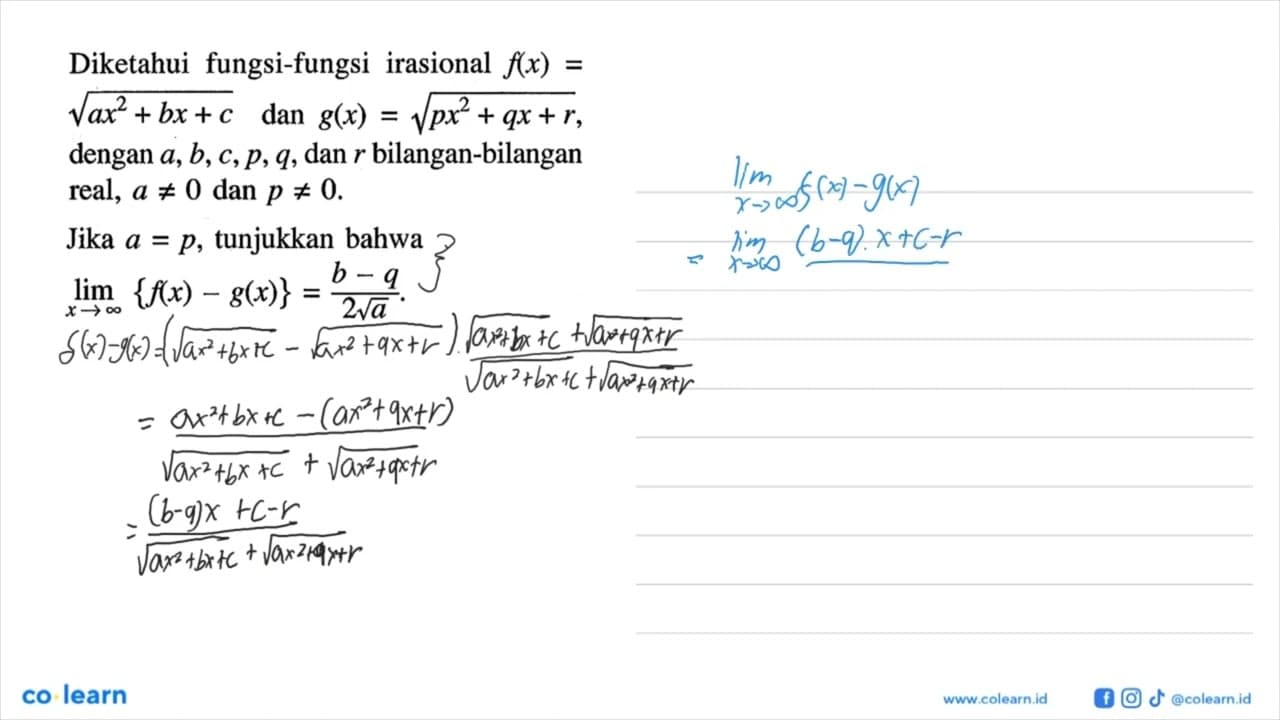 Diketahui fungsi-fungsi irasional f(x) =
√(ax² + bx + c) dan g(x) = √(px² + qx + r),
dengan a, b, c, p, q, dan r bilangan-bilangan
real, a ≠ 0 dan p ≠ 0.
Jika a = p, tunjukkan bahwa
lim x→∞ {f(x) − g(x)} = (b − q)/(2√a).
f(x)-g(x) = (√(ax²+bx+c) − √(ax²+qx+r)) . (√(ax²+bx+c) + √(ax²+qx+r))/(√(ax²+bx+c) + √(ax²+qx+r))
= (ax²+bx+c − (ax²+qx+r))/(√(ax²+bx+c) + √(ax²+qx+r))
= ((b-q)x + c-r)/(√(ax²+bx+c) + √(ax²+qx+r))
lim x→∞ f(x) − g(x)
= lim x→∞ (b-q).x + c-r
co·learn
www.colearn.id
@colearn.id